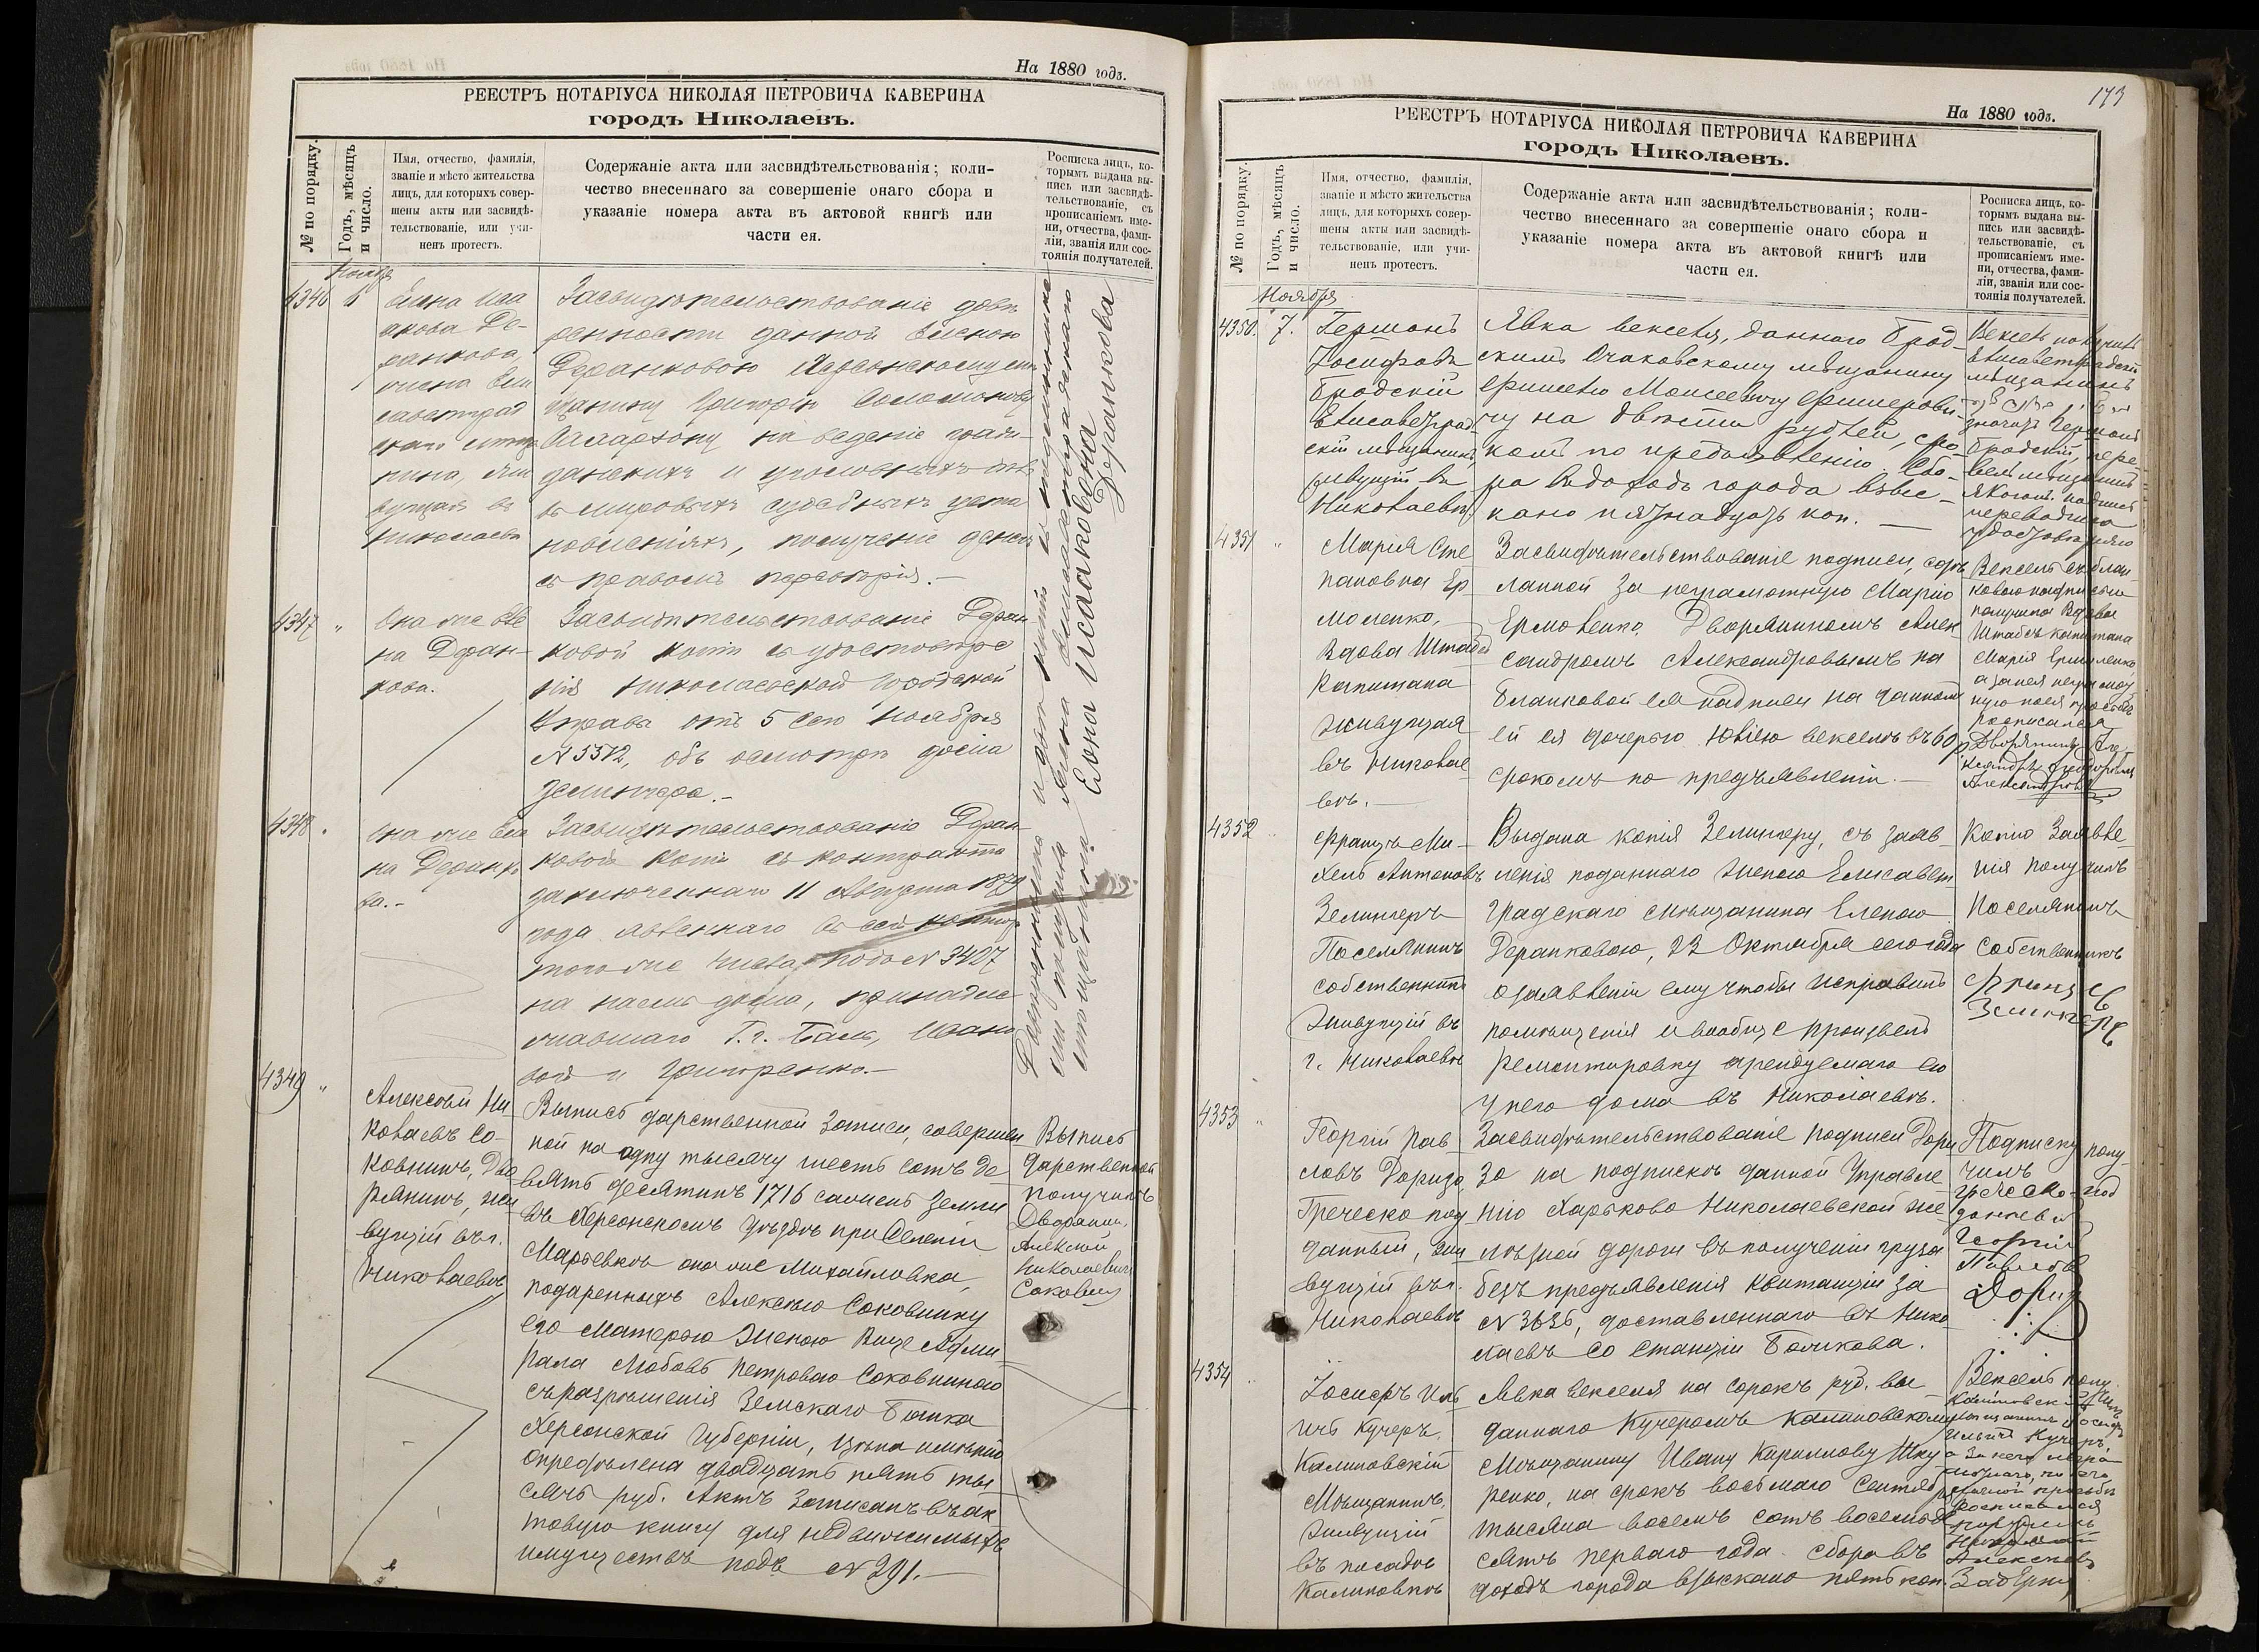 На 1880 годъ.
РЕЕСТРЪ НОТАРІУСА НИКОЛАЯ ПЕТРОВИЧА КАВЕРИНА
городъ Николаевъ.
№ по порядку.
Годъ, мѣсяцъ и число.
Имя, отчество, фамилія,
званіе и мѣсто жительства
лицъ, для которыхъ совер-
шены акты или засвидѣ-
тельствованіе, или учи-
ненъ протестъ.
Содержаніе акта или засвидѣтельствованія; коли-
чество внесеннаго за совершеніе онаго сбора и
указаніе номера акта въ актовой книгѣ или
части ея.
Росписка лицъ, ко-
торымъ выдана вы-
пись или засвидѣ-
тельствованіе, съ
прописаніемъ име-
ни, отчества, фами-
ліи, званія или сос-
тоянія получателей.
Ноября
4346 6
Елена Исаа
кова Де-
ранкова,
жена Ели
саветград
скаго
живущая въ
Николаевѣ
Засвидѣтельствованіе довѣ
ренности данной Еленою
Деранковою Херсонскому мѣ
щанину Григорію Соломонову
на веденіе граж-
данскихъ и уголовныхъ дѣлъ
въ мировыхъ судебныхъ уста
новленіяхъ, полученіе денегъ
съ правомъ передовѣрія.—
4347 "
Она же Еле
на Деран-
кова.
Засвидѣтельствованіе Деран
ковой копіи съ удостовѣре
нія Николаевской Городской
Управы отъ 5 сего Ноября
№ 3372, объ осмотрѣ дома
Зелингера.—
4348 "
Она же Еле
на Деранко
ва.—
Засвидѣтельствованіе Деран-
ковой копіи съ контракта
заключеннаго 11 Августа 1879
года явленнаго въ сей контор
того же числа подъ № 3427
на наемъ дома, принадле
жавшаго Г.г. Бакъ, Ивано
вой и Григоренко.—
Елена Исааковна
Деранкова
4349 "
Алексѣй Ни
колаевъ Со-
ковнинъ, Дво
рянинъ, жи
вущій въ г.
Николаевѣ
Выпись дарственной записи, совершен
ной на одну тысячу шесть сотъ де
вять десятинъ 1716 саженъ земли
въ Херсонскомъ уѣздѣ при Селеніи
Марьевкѣ она же Михайловка,
подаренныхъ Алексѣю Соковнину
его Матерью Женою Вице Адми
рала Любовь Петровою Соковниною
съ разрѣшенія Земскаго Банка
Херсонской Губерніи, цѣна имѣнію
опредѣлена двадцать пять ты
сячъ руб. Актъ записанъ въ ак
товую книгу для недвижимыхъ
имуществъ подъ № 291.—
Выпись
дарственной
получилъ
Дворянинъ
Алексѣй
Николаевичъ
Соковнинъ
173
На 1880 годъ.
РЕЕСТРЪ НОТАРІУСА НИКОЛАЯ ПЕТРОВИЧА КАВЕРИНА
городъ Николаевъ.
№ по порядку.
Годъ, мѣсяцъ и число.
Имя, отчество, фамилія,
званіе и мѣсто жительства
лицъ, для которыхъ совер-
шены акты или засвидѣ-
тельствованіе, или учи-
ненъ протестъ.
Содержаніе акта или засвидѣтельствованія; коли-
чество внесеннаго за совершеніе онаго сбора и
указаніе номера акта въ актовой книгѣ или
части ея.
Росписка лицъ, ко-
торымъ выдана вы-
пись или засвидѣ-
тельствованіе, съ
прописаніемъ име-
ни, отчества, фами-
ліи, званія или сос-
тоянія получателей.
Ноября
4350. 7.
Гершонъ
Іосифовъ
Бродскій
Елисаветград-
скій мѣщанинъ,
живущій въ
Николаевѣ
Явка векселя, даннаго Брод-
скимъ Очаковскому мѣщанину
Фишелю Моисеевичу Фишерови-
чу на двѣсти рублей, сро-
комъ по предъявленію. Сбо-
ра въ доходъ города взыс-
кано пятнадцать коп. —
Вексель получилъ
Елисаветградскій
мѣщанинъ
значитъ Гершонъ
Бродскій, пере-
велъ мѣщанинъ
4351 "
Марія Сте
пановна Ер
моленко,
Вдова Штабсъ
Капитана
живущая
въ Николае
вѣ.—
Засвидѣтельствованіе подписи, сдѣ
ланной за неграмотную Марію
Ермоленко, Дворяниномъ Алек
сандромъ Александровымъ на
бланковой ея надписи на данномъ
ей ея дочерью Юліею векселѣ въ 60 р
срокомъ по предъявленіи.—
Вексель съ блан
ковою надписью
получила Вдова
Штабсъ капитана
Марія Ермоленко
а за нея неграмот
ную по ея просьбѣ
росписался
Дворянинъ
4352 "
Францъ Ми-
хель Антоновъ
Зелингеръ
Поселянинъ
собственникъ
Живущій въ
г. Николаевѣ
Выдана копія Зелингеру, съ заяв
ленія поданнаго женою Елисавет
градскаго мѣщанина Еленою
Деранковою, 22 Октября сего года
о заявленіи ему чтобы исправилъ
помѣщенія и вообще произвелъ
ремонтировку арендуемаго ею
у него дома въ Николаевѣ.
Копію Заявле
нія получилъ
Поселянинъ
Собственникъ
Францъ
Зелингеръ
4353 "
Георгій Пав
ловъ Дориза
Греческо под
данный, жи
вущій въ г.
Николаевѣ
Засвидѣтельствованіе подписи Дори
за на подпискѣ данной Управле
нію Харьково Николаевской же
лѣзной дороги въ полученіи груза
безъ предъявленія квитанціи за
№ 3636, доставленнаго въ Нико
лаевъ со станціи Боликова.
Подписку полу-
чилъ
Греческо-под
данный
Георгій
Павловъ
Дориза
4354 "
Іосифъ Иль
инъ Кучеръ,
Калиновскій
Мѣщанинъ,
живущій
въ посадѣ
Калиновкѣ
Явка векселя на сорокъ руб. вы
даннаго Кучеромъ Калиновскому
Мѣщанину Ивану Кириллову Шку
ренко, на срокъ восьмаго Сентября
тысяча восемь сотъ восемьде
сятъ перваго года. Сбора въ
доходъ города взыскано пять коп.
Вексель полу
чилъ
Калиновскій
мѣщанинъ Іосифъ
Ильинъ Кучеръ,
а за него негра
мотнаго, по его
личной просьбѣ
росписался